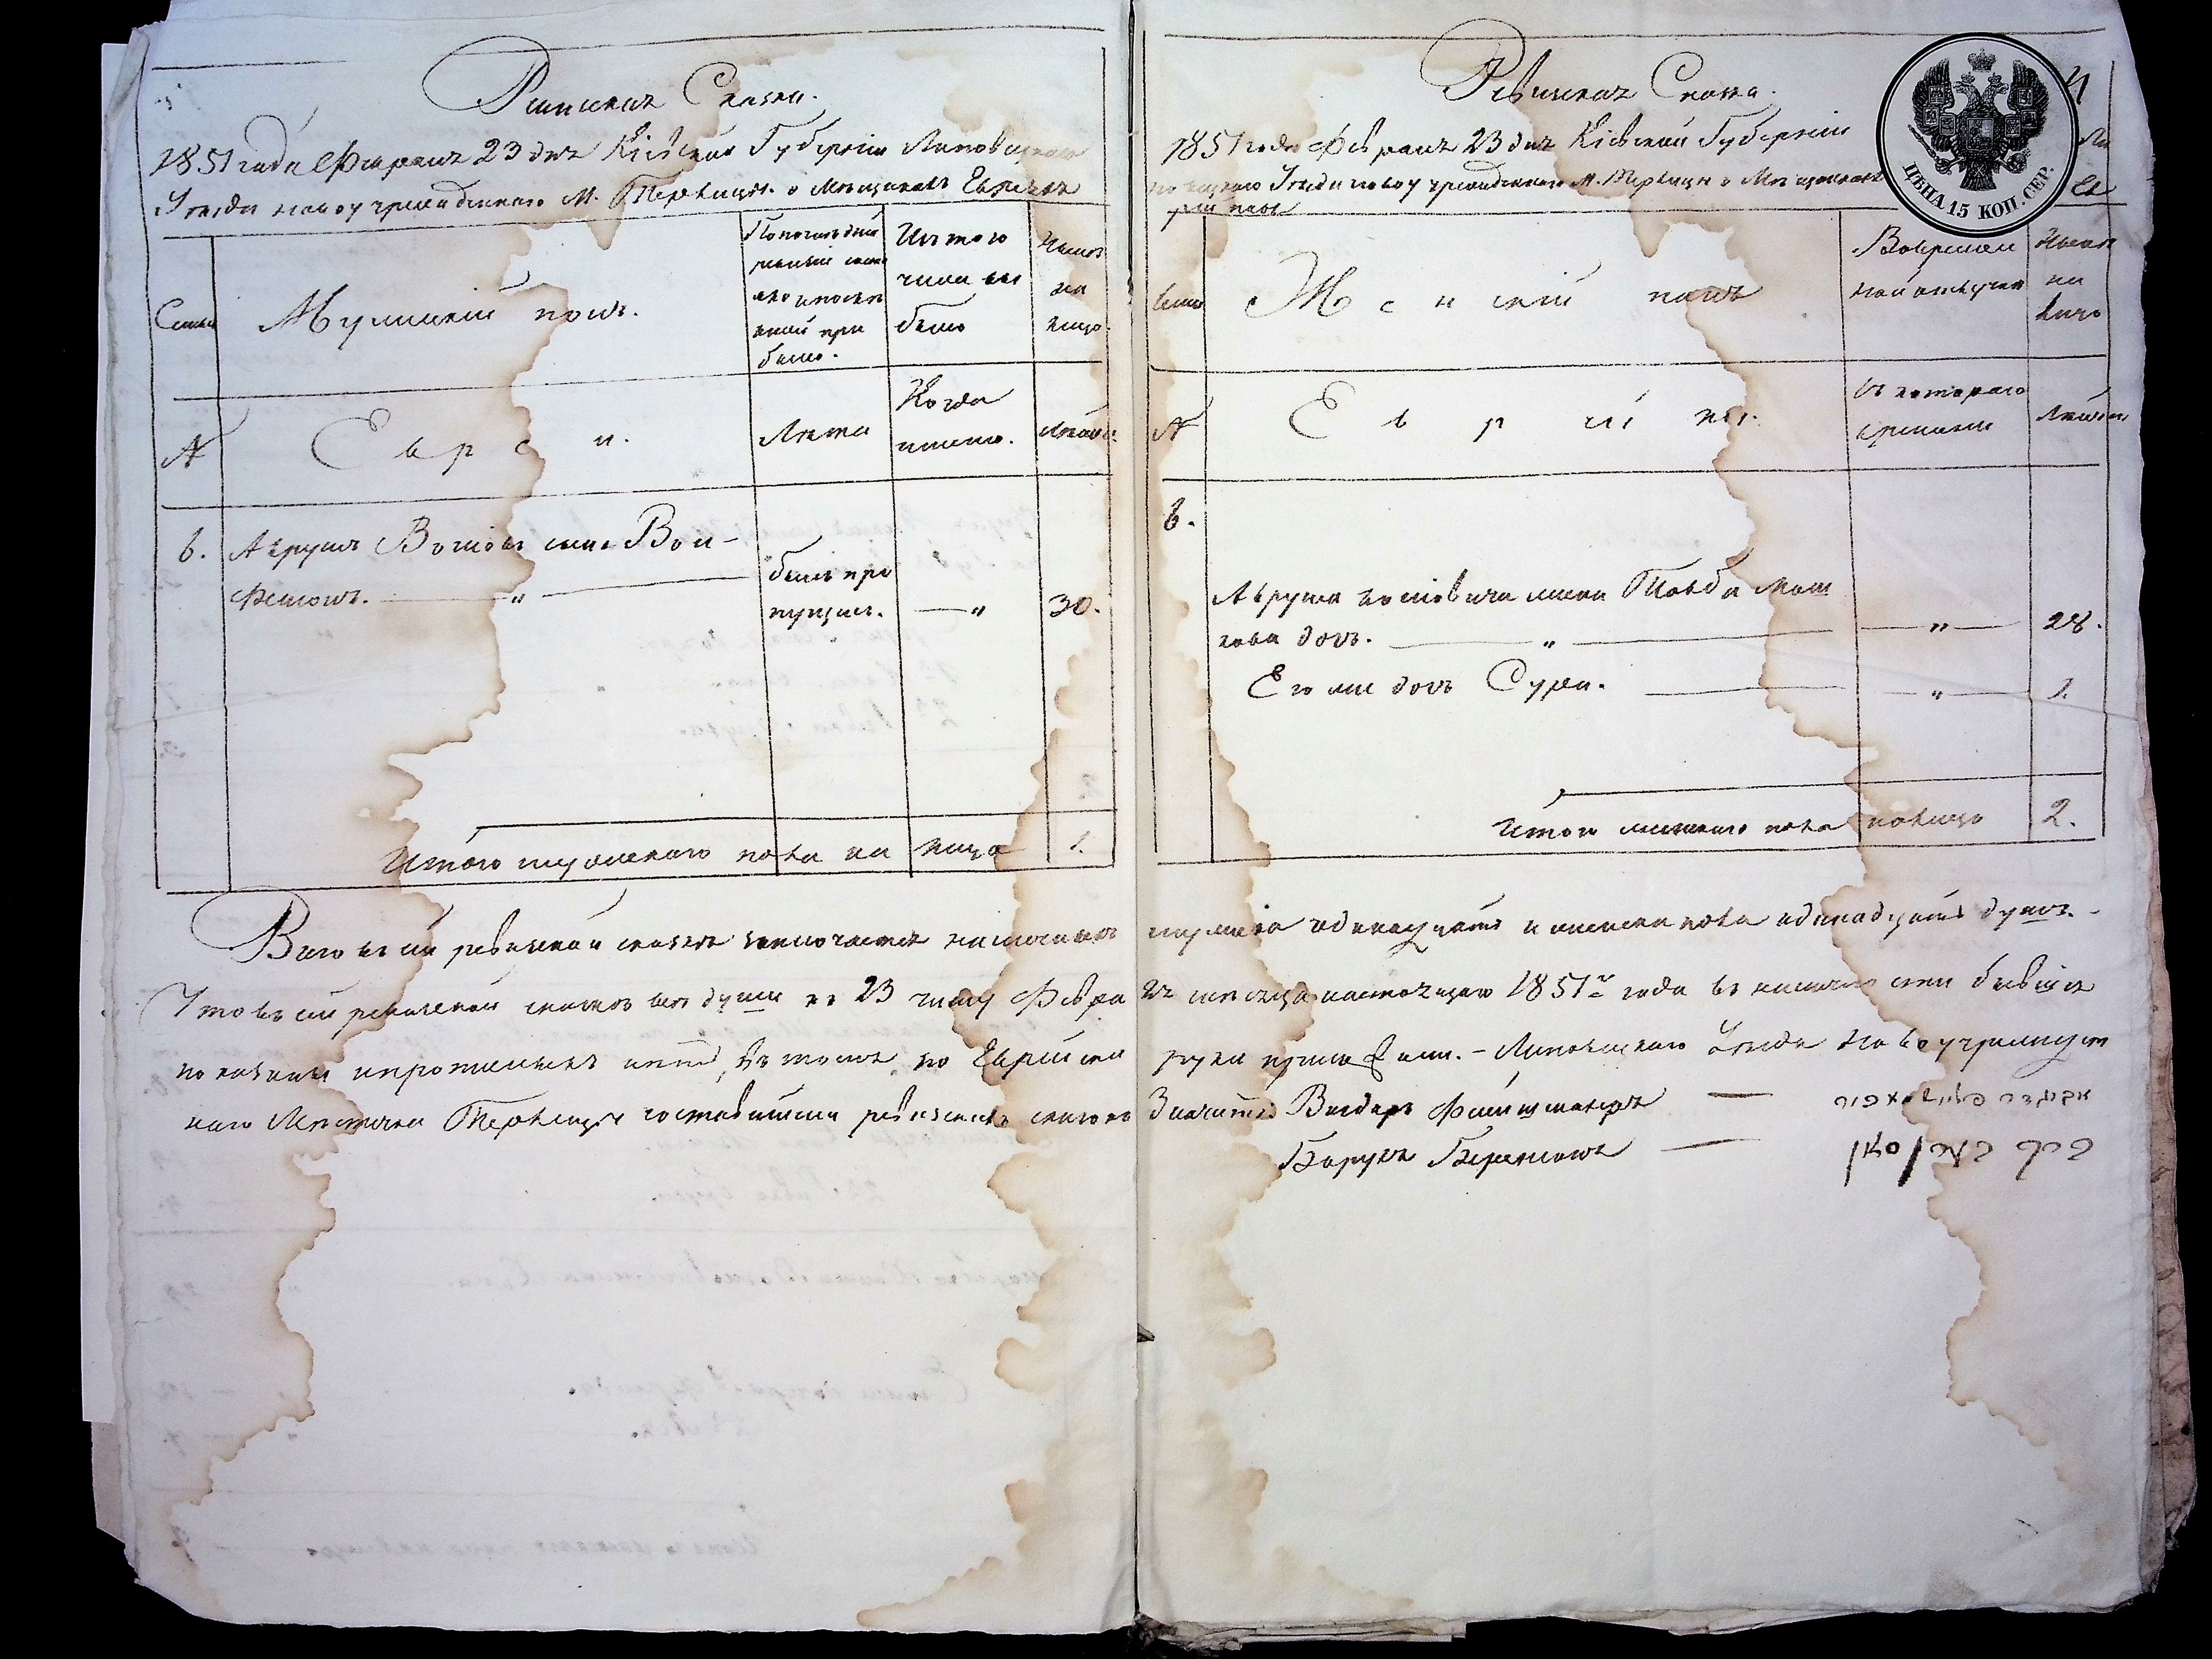 Ревизская Сказка.
1851 года Февраля 23 дня Кіевской Губерніи Липовецкаго
Уѣзда новоучрежденнаго М. Терлицы о Мѣщанахъ Евреяхъ
Семьи
Мужескій полъ.
По последней
ревизіи состо
яло и послѣ
оной при
было.
Изъ того
числа вы
было
Нынѣ
на
лицо.
№
Евреи.
Лѣта
Когда
именно.
Лѣта
6. Аврумъ Волковъ сынъ Вол-
фсонъ. — " —
былъ про
пущенъ. — " 30.
Итого мужескаго пола на лицо 1.
Ревизская Сказка.
1851 года Февраля 23 дня Кіевской Губерніи Ли
повецкаго Уѣзда новоучрежденнаго М. Терлицы о Мѣщанахъ Ев
рейскаго
ЦѢНА 15 КОП. СЕР.
Семьи
Женскій полъ
Во времен
ной отлучкѣ
Нынѣ
на
лицо
№
Еврейки.
Съ котораго
времени
Лѣта
6.
Аврума жена
дочь. — " — — " — 28.
Его же дочь Сура. — — " — 1.
Итого женскаго пола на лицо 2.
Всего въ сей ревизской сказкѣ заключается наличныхъ мужеска одинадцать и женска пола одинадцать душъ. -
Что въ сей ревизской сказкѣ всѣ души къ 23 числу Февраля мѣсяца настоящаго 1851го года въ наличности бывшія
показаны и прописныхъ нѣтъ, въ томъ по Еврейски руки приложили. - Липовецкаго Уѣзда Новоучрежден
наго Мѣстечка Терлицы составители ревизскихъ сказокъ
Барухъ Беренсонъ —